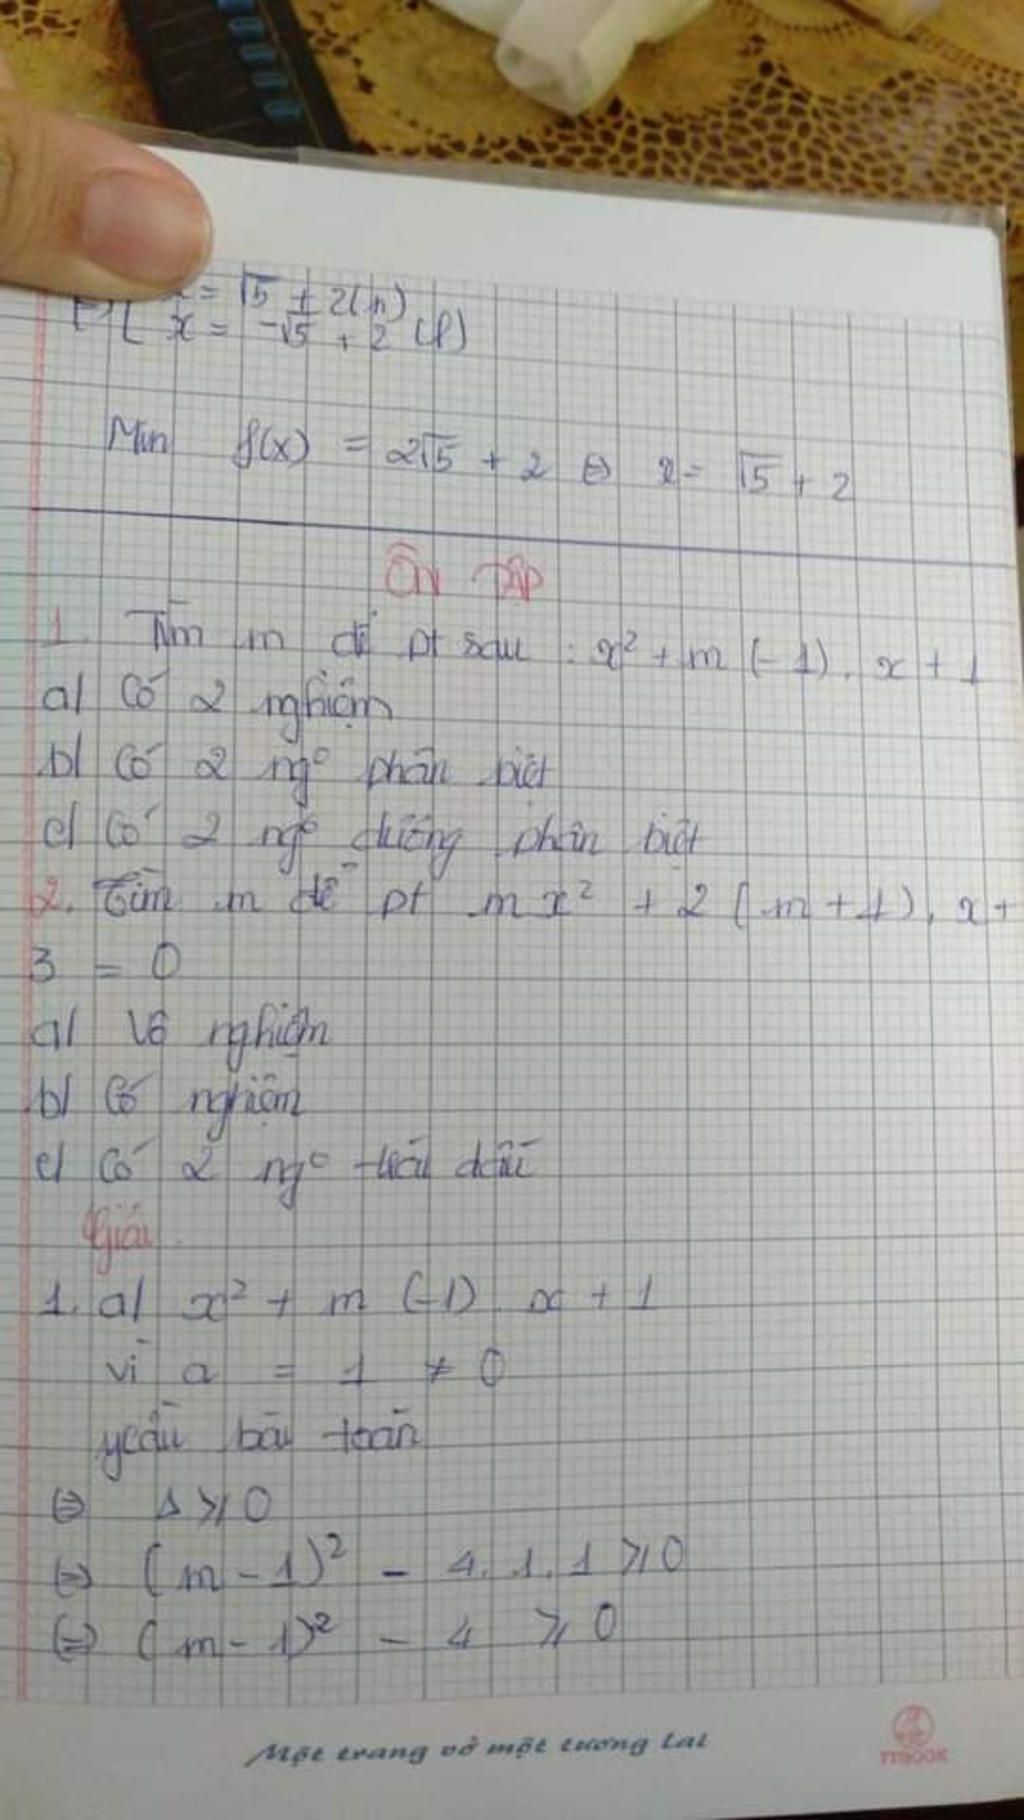 x = √5 + 2 (n)
x = -√5 + 2 (l)
Min f(x) = 2√5 + 2 ⇔ x = √5 + 2
ÔN TẬP
1. Tìm m để pt sau : x² + m (-1). x + 1
a/ Có 2 nghiệm
b/ Có 2 ngo phân biệt
c/ Có 2 ngo dương phân biệt
2. Tìm m để pt mx² + 2 (m + 1). x +
3 = 0
a/ Vô nghiệm
b/ Có nghiệm
c/ Có 2 ngo trái dấu
Giải
1. a/ x² + m (-1) x + 1
vì a = 1 ≠ 0
ycầu bài toán
⇔ Δ ≥ 0
⇔ (m - 1)² - 4. 1. 1 ≥ 0
⇔ (m - 1)² - 4 ≥ 0
Một trang vở một tương lai
TTBOOK